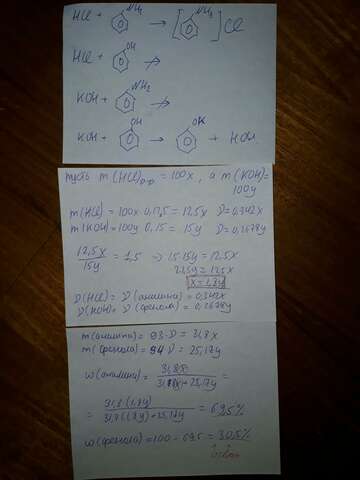 HCl + NH₂ → [NH₃]Cl
HCl + OH ↛
KOH + NH₂ ↛
KOH + OH → OK + HOH
пусть m(HCl)р-р = 100x, а m(KOH) =
100y
m(HCl) = 100x·0,125 = 12,5x ν = 0,342x
m(KOH) = 100y·0,15 = 15y ν = 0,2678y
12,5x
15y
= 1,5 → 1,5·15y = 12,5x
22,5y = 12,5x
x = 1,8y
ν(HCl) = ν(анилина) = 0,342x
ν(KOH) = ν(фенола) = 0,2678y
m(анилина) = 93·ν = 31,8x
m(фенола) = 94·ν = 25,17y
w(анилина) = 31,8x
31,8x + 25,17y
=
= 31,8·(1,8y)
31,8·(1,8y) + 25,17y
= 69,5%
w(фенола) = 100 - 69,5 = 30,5%